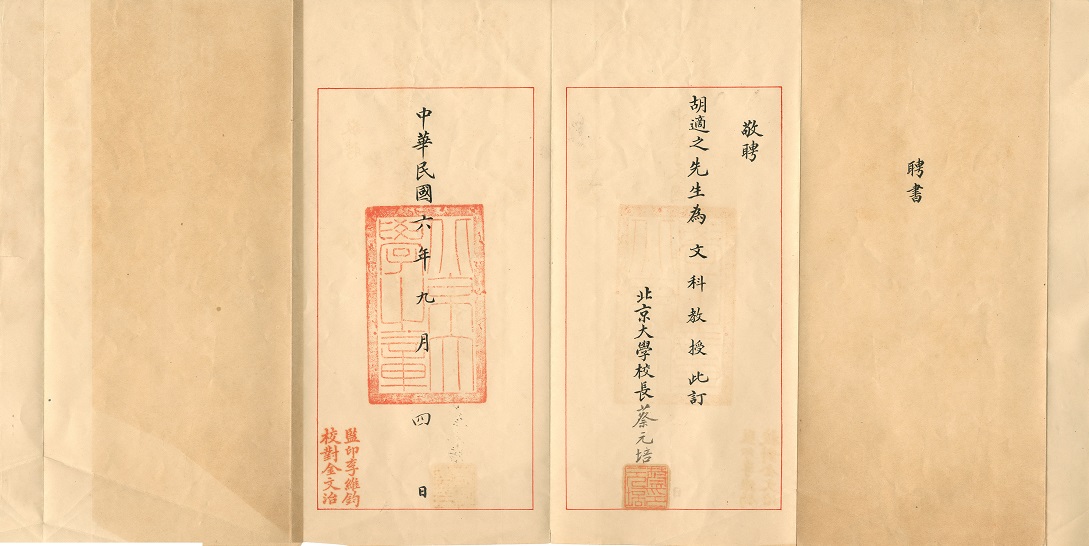 聘書
敬聘
胡適之先生為文科教授此訂
北京大學校長蔡元培
中華民國六年九月四日
北京大
學之章
監印李維鈞
校對金文治